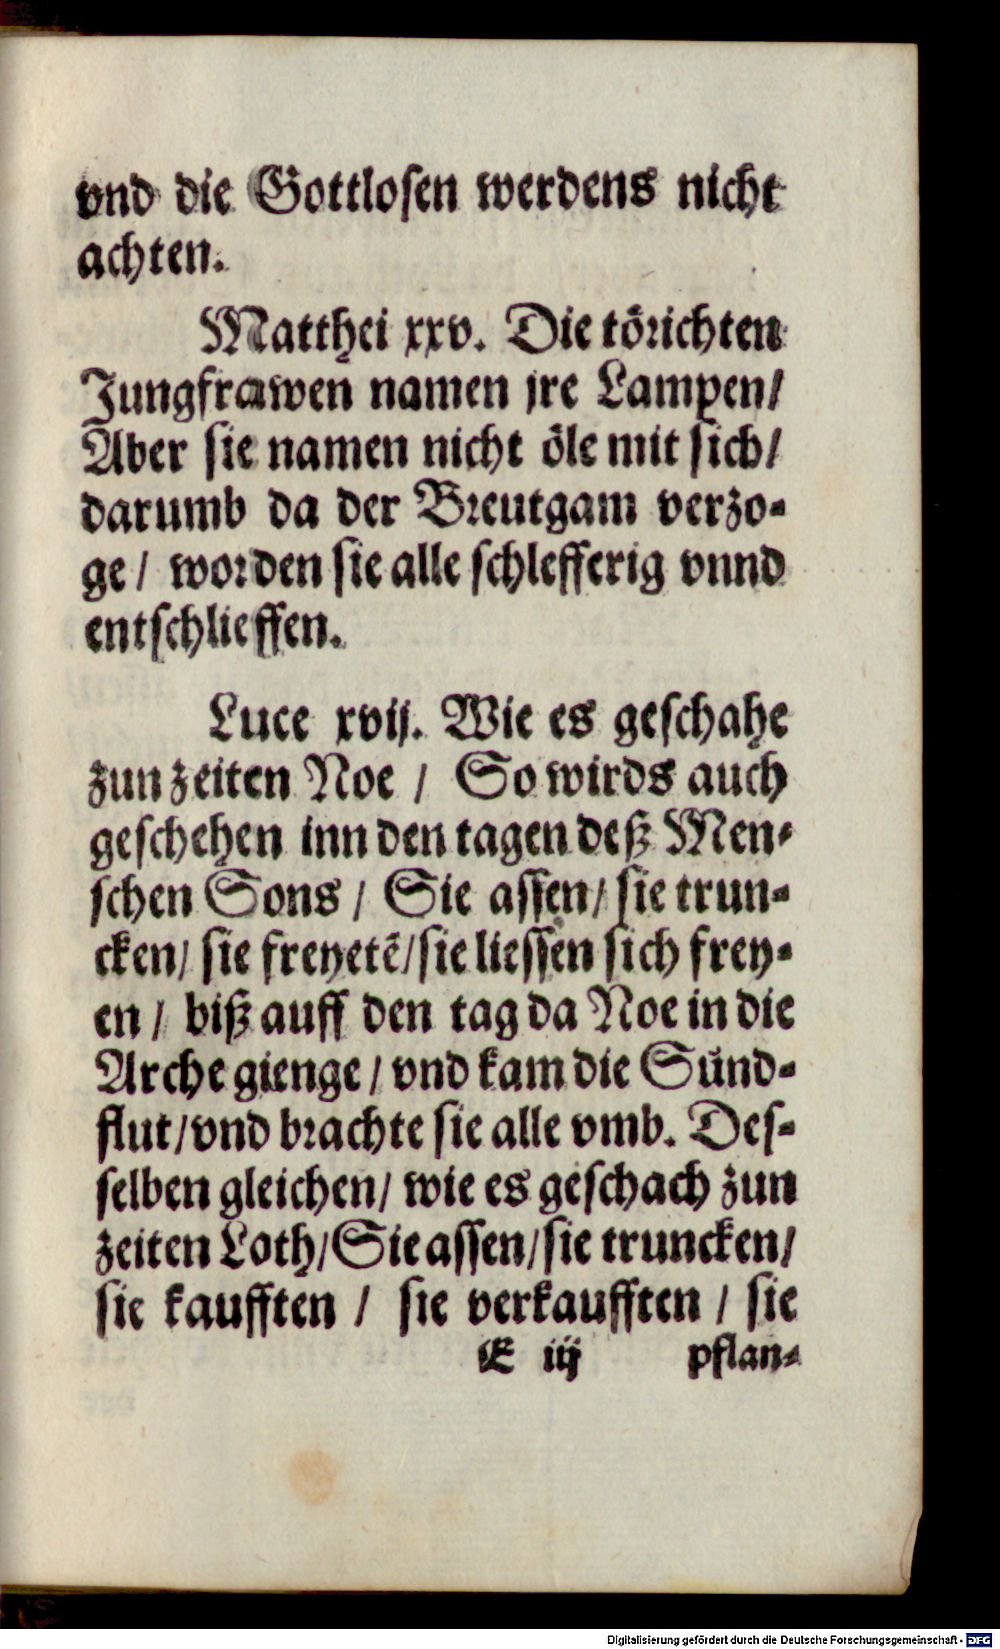 vnd die Gottlosen werdens nicht
achten.
Matthei xxv. Die törichten
Jungfrawen namen jre Lampen/
Aber sie namen nicht öle mit sich/
darumb da der Breutgam verzo-
ge / worden sie alle schlefferig vnnd
entschlieffen.
Luce xvij. Wie es geschahe
zun zeiten Noe / So wirds auch
geschehen inn den tagen deß Men-
schen Sons / Sie assen/ sie trun-
cken/ sie freyetē/sie liessen sich frey-
en / biß auff den tag da Noe in die
Arche gienge / vnd kam die Sünd-
flut/vnd brachte sie alle vmb. Des-
selben gleichen/ wie es geschach zun
zeiten Loth/Sie assen/sie truncken/
sie kaufften / sie verkaufften / sie
E iij pflan-
Digitalisierung gefördert durch die Deutsche Forschungsgemeinschaft - DFG